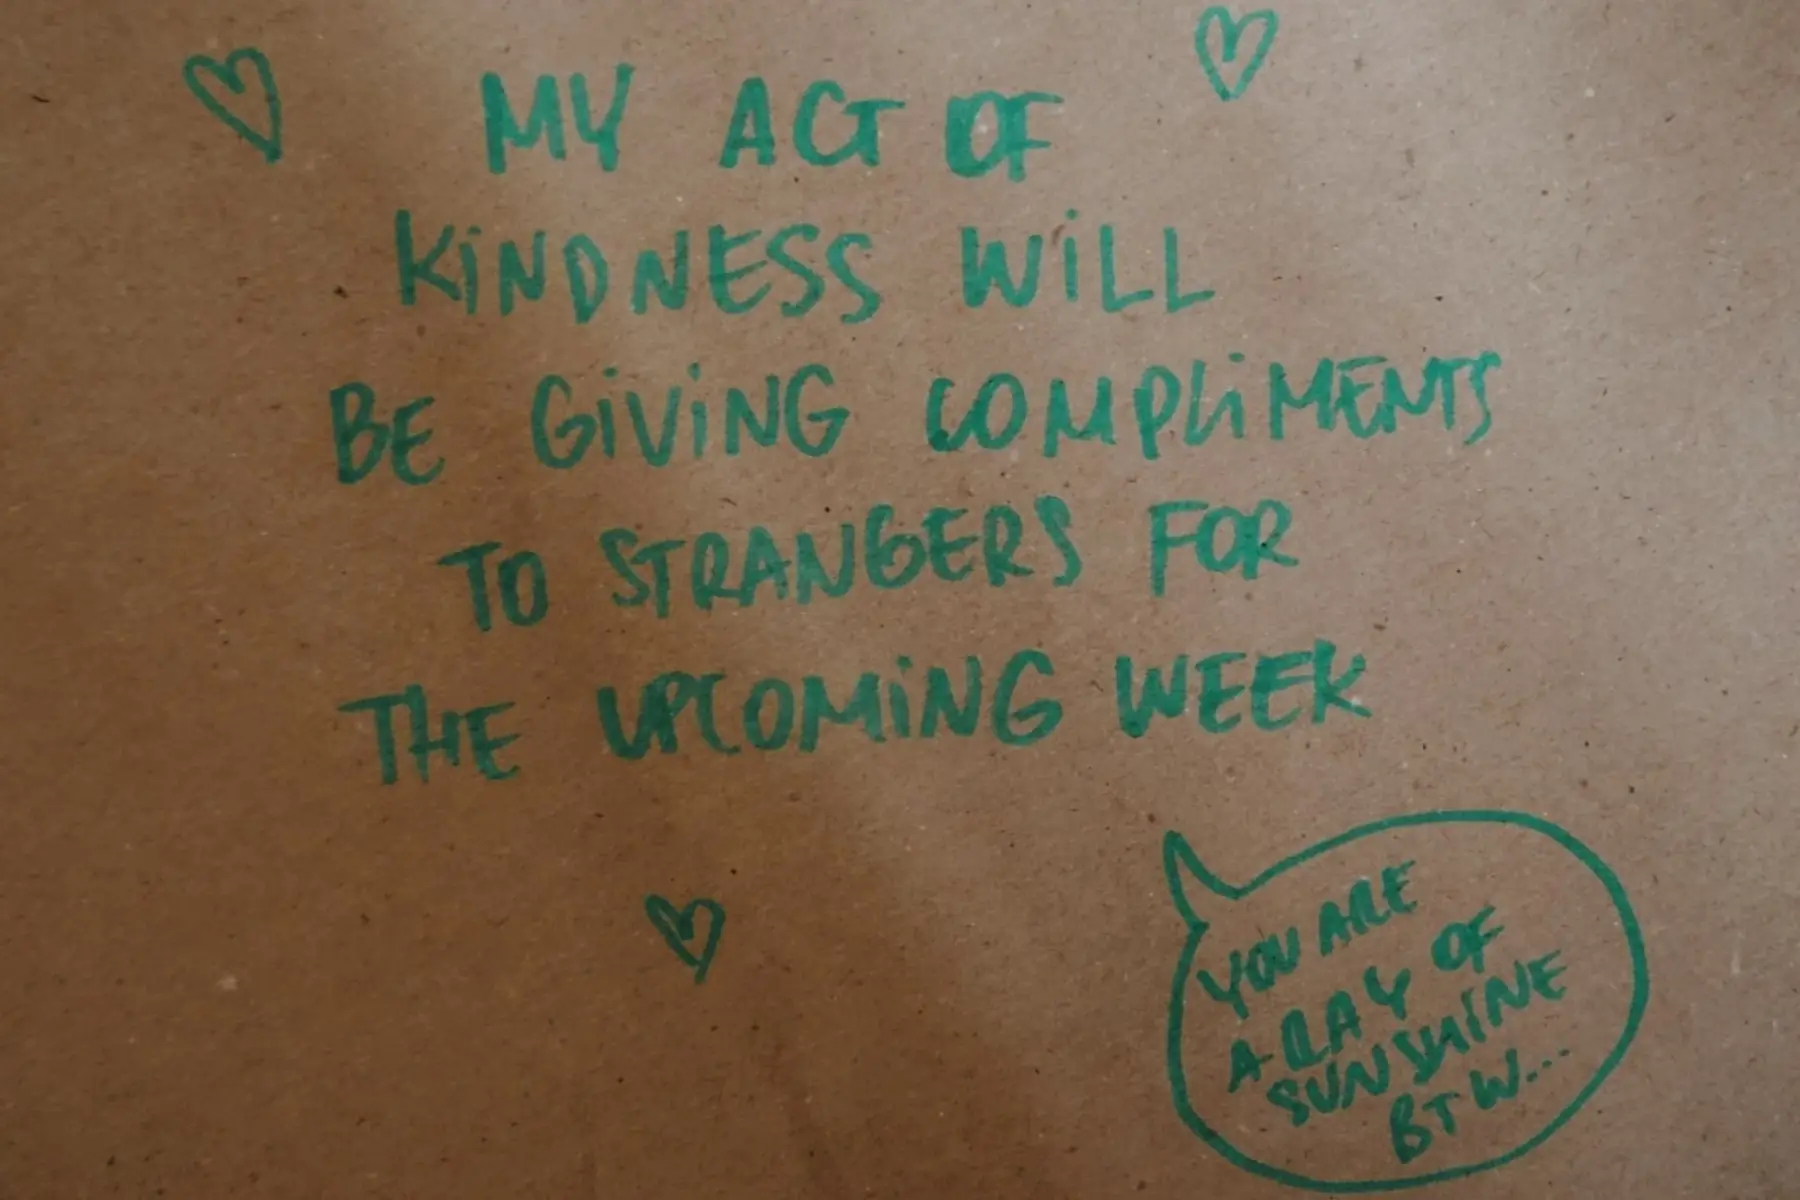 MY ACT OF
KiNDNESS WiLL
BE GiViNG COMPLiMENTS
TO STRANGERS FOR
THE UPCOMiNG WEEK
YOU ARE
A RAY OF
SUNSHiNE
BTW...